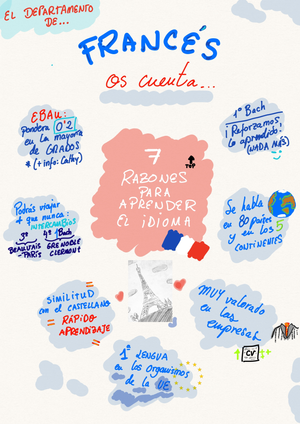 EL DEPARTAMENTO
DE...
FRANCÉS
os cuenta...
EBAU:
Pondera 0'2
en la mayoría
de GRADOS
* (+ info: Cathy)
1º Bach
¡Reforzamos
lo aprendido!
(NADA MÁS)
7
RAZONES
PARA
APRENDER
EL IDIOMA
TOP
Podrás viajar
+ que nunca:
INTERCAMBIOS
3º 4º 1º Bach
BEAUVAIS GRENOBLE
-PARÍS CLERMONT
Se habla
en 80 países
y en los 5
CONTINENTES
SIMILITUD
con el CASTELLANO
=
RÁPIDO
APRENDIZAJE
MUY valorado
en las
empresas
CV
1ª LENGUA
en los organismos
de la UE